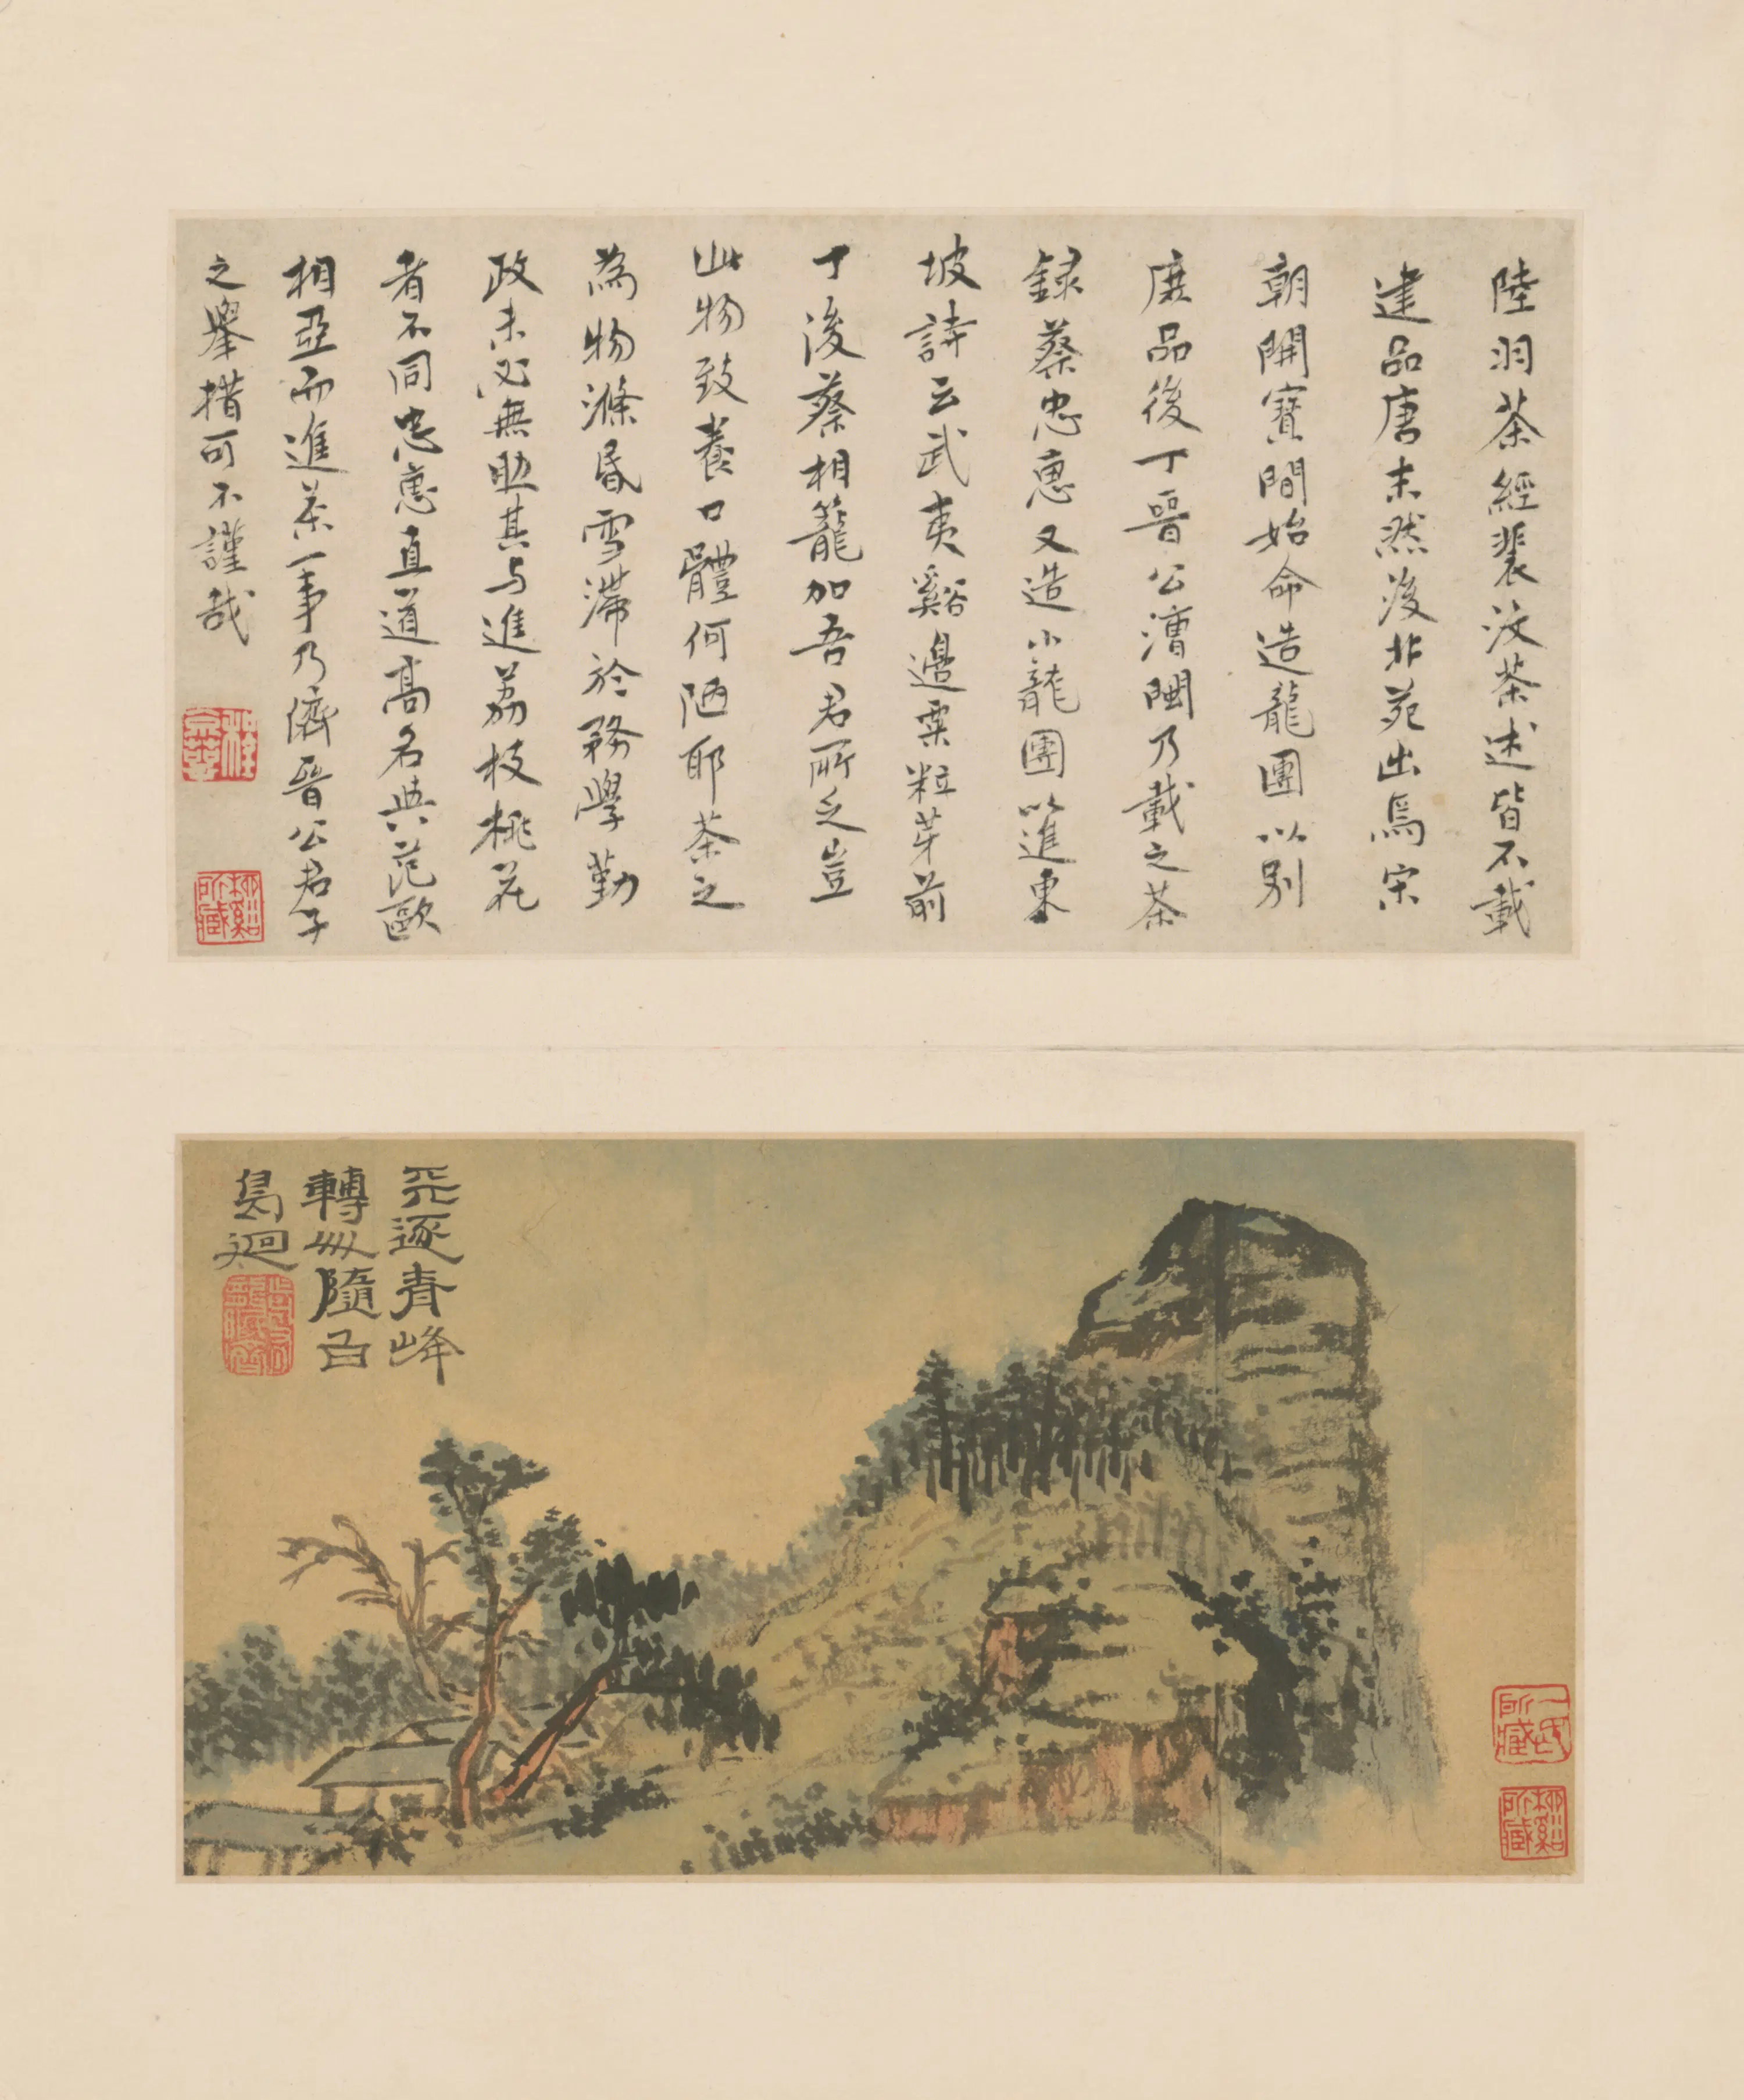 陸羽茶經裴汶茶述皆不載
建品唐末然後北苑出焉宋
朝開寶間始命造龍團以別
庶品後丁晉公漕閩乃載之茶
録蔡忠惠又造小龍團以進東
坡詩云武夷谿邊粟粒芽前
丁後蔡相籠加吾君所乏豈
此物致養口體何陋耶茶之
為物滌昏雪滯於務學勤
政未必無助其与進荔枝桃花
者不同忠惠直道高名與范歐
相亞而進茶一事乃儕晉公君子
之舉措可不謹哉
逐青峰
轉隨白
鳥迴
所藏
所藏